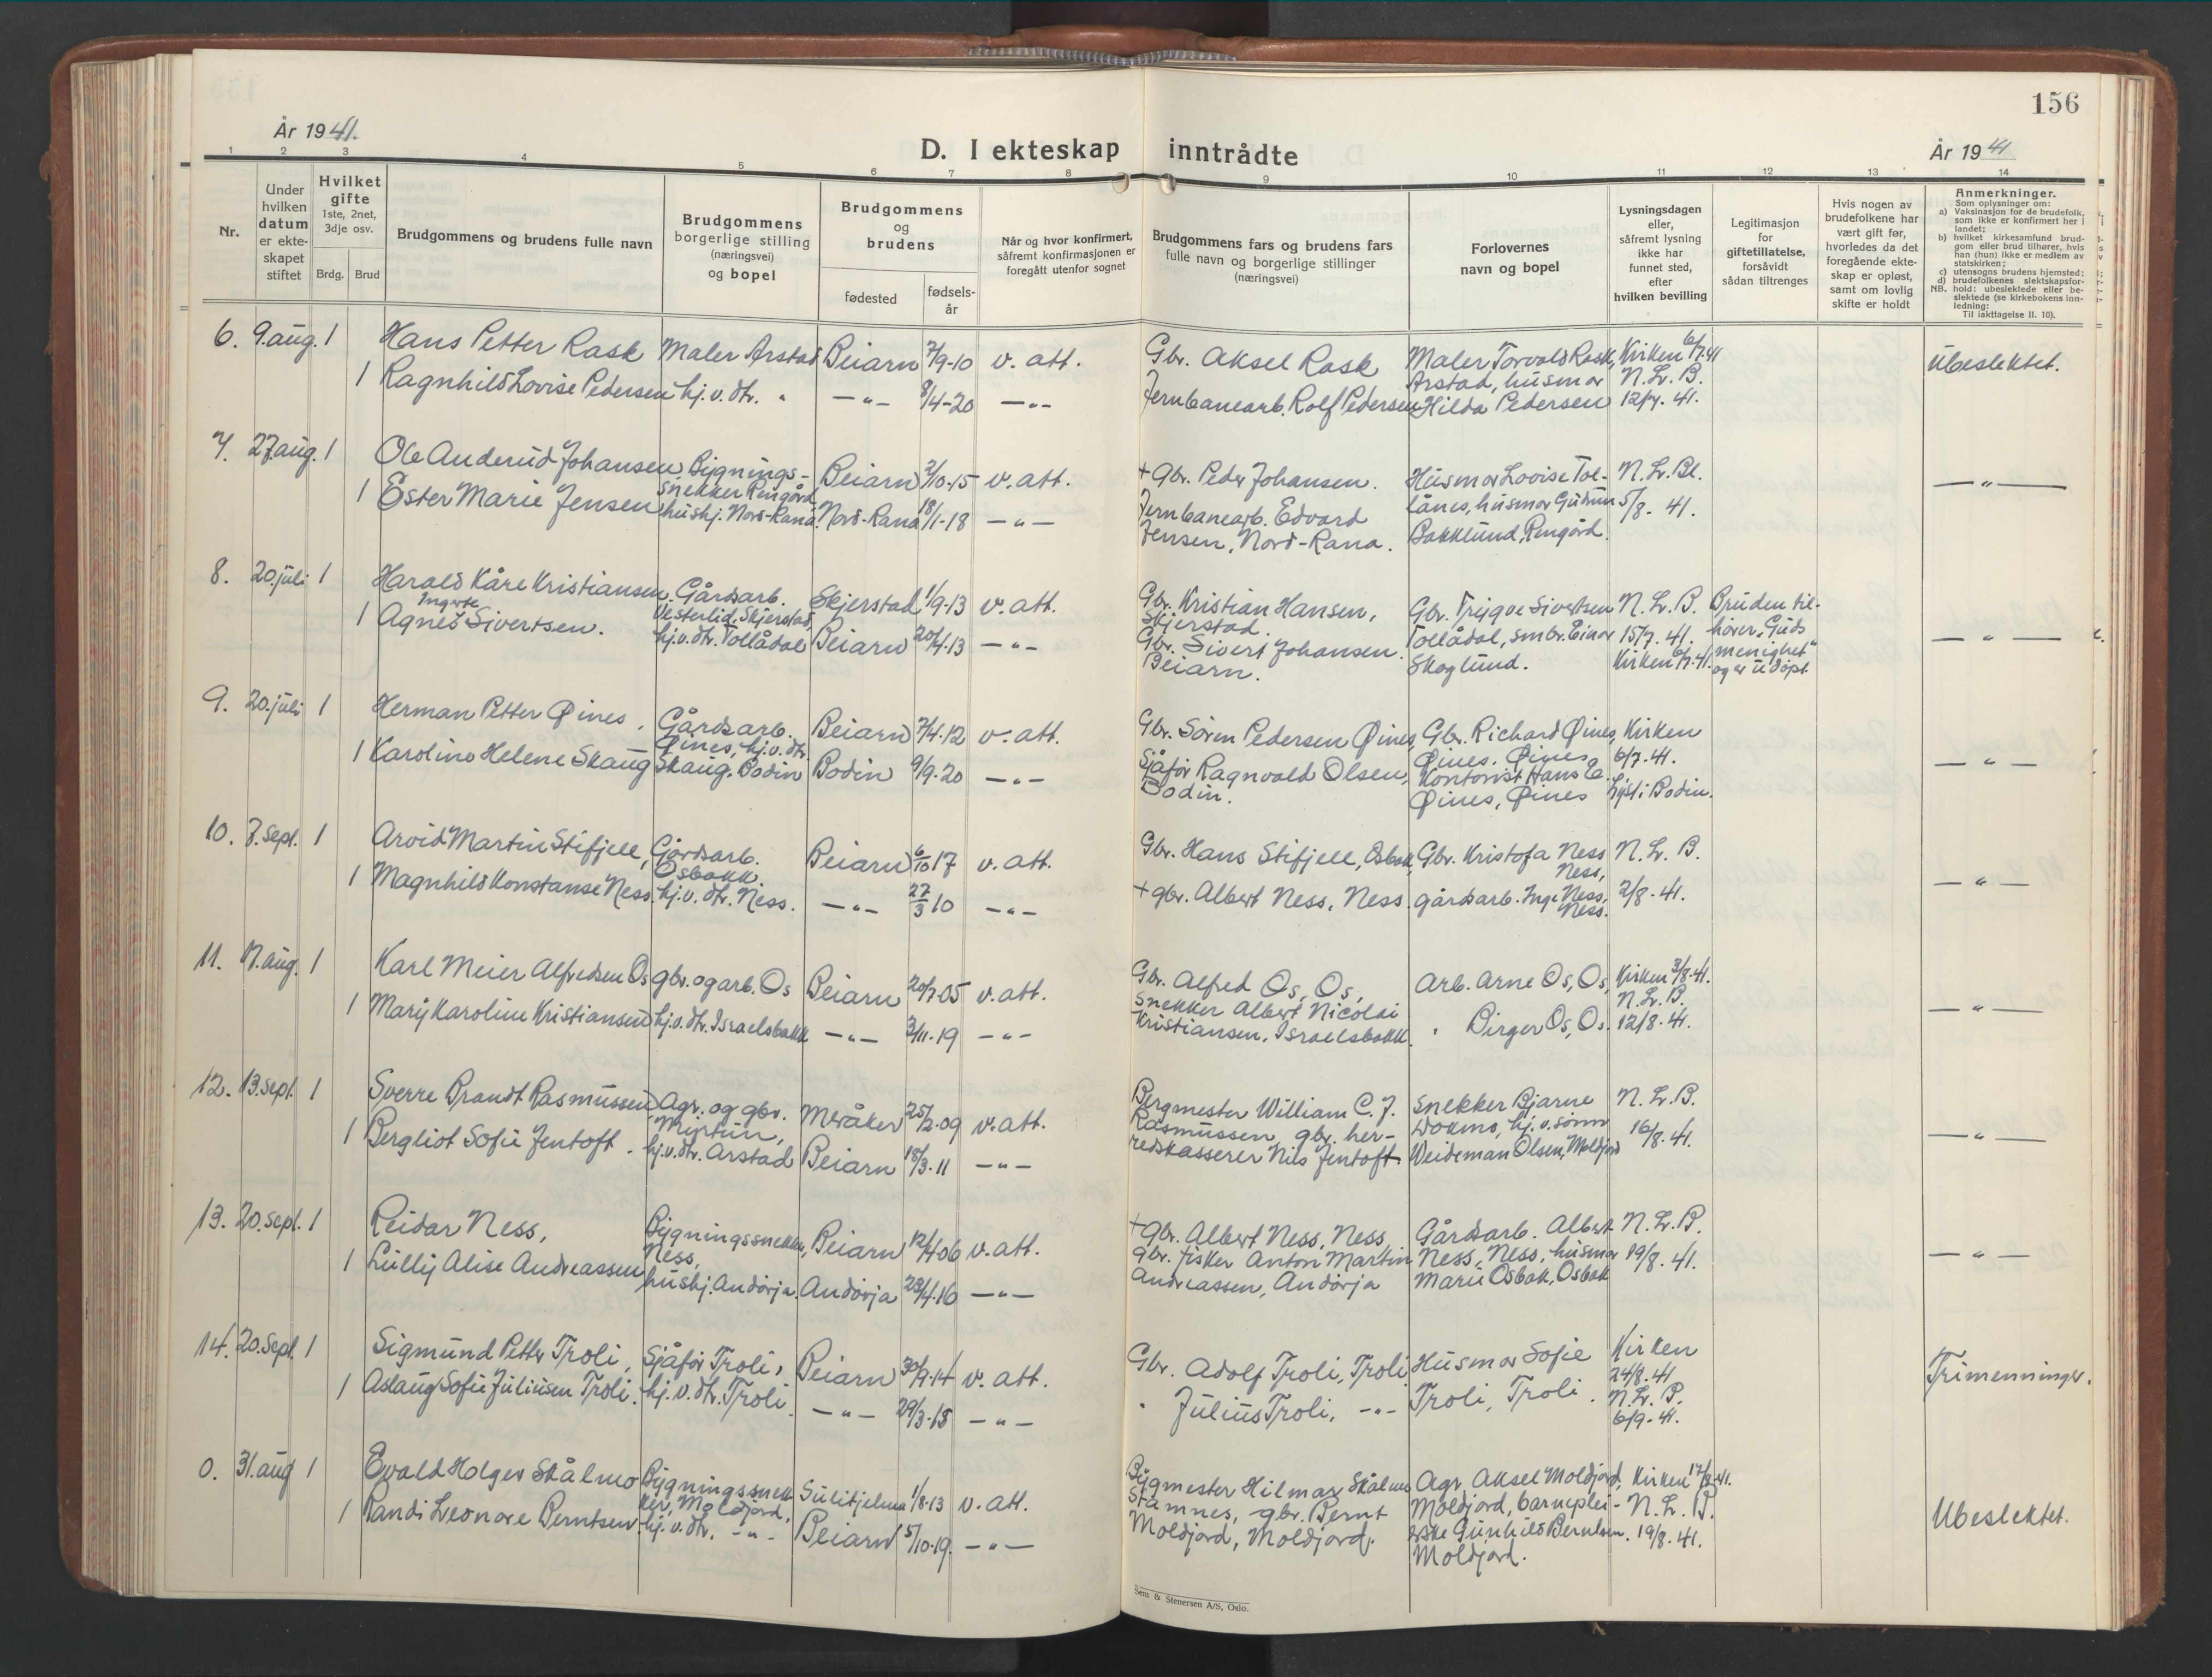 156
År 1941.
D. I ekteskap inntrådte
År 1941
1 2 3 4 5 6 7 8 9 10 11 12 13 14
Nr.
Under
hvilken
datum
er ekte-
skapet
stiftet
Hvilket
gifte
1ste, 2net,
3dje osv.
Brdg. Brud
Brudgommens og brudens fulle navn
Brudgommens
borgerlige stilling
(næringsvei)
og bopel
Brudgommens
og
brudens
fødested
fødsels-
år
Når og hvor konfirmert,
såfremt konfirmasjonen er
foregått utenfor sognet
Brudgommens fars og brudens fars
fulle navn og borgerlige stillinger
(næringsvei)
Forlovernes
navn og bopel
Lysningsdagen
eller,
såfremt lysning
ikke har
funnet sted,
efter
hvilken bevilling
Legitimasjon
for
giftetillatelse,
forsåvidt
sådan tiltrenges
Hvis nogen av
brudefolkene har
vært gift før,
hvorledes da det
foregående ekte-
skap er opløst,
samt om lovlig
skifte er holdt
Anmerkninger.
Som oplysninger om:
a) Vaksinasjon for de brudefolk,
som ikke er konfirmert her i
landet;
b) hvilket kirkesamfund brud-
gom eller brud tilhører, hvis
han (hun) ikke er medlem av
statskirken;
c) utensogns brudens hjemsted;
d) brudefolkenes slektskapsfor-
NB. hold: ubeslektede eller be-
slektede (se kirkebokens inn-
ledning:
Til iakttagelse II. 10).
6. 9. aug. 1 Hans Petter Rask Maler Arstad Beiarn 7/9-10 v. att. Gbr. Aksel Rask Maler Torvald Rask, Kirken 6/7.41 Ubeslektet.
1 Ragnhild Lovise Pedersen hj.v.dtr. " —"— 8/4-20 —"— Jernbanearb. Rolf Pedersen Arstad, husmor N.Lr.B.
Hilda Pedersen 12/7. 41.
7. 27. aug. 1 Ole Anderud Johansen Bygnings- Beiarn 2/10-15 v. att. + Gbr. Peder Johansen. Husmor Lovise Tol- N.Lr.Bl. —"—
snekker Ringård
1 Ester Marie Jensen hushj. Nord-Rana. Nord-Rana 18/1-18 —"— Jernbanearb. Edvard lånes, husmor Gudrun 5/8. 41.
Jensen, Nord-Rana. Bakklund, Ringård.
8. 20. juli 1 Harald Kåre Kristiansen Gårdsarb. Skjerstad 1/9-13 v. att. Gbr. Kristian Hansen, Gbr. Trygve Sivertsen N.Lr.B. Bruden til-
Vesterlid, Skjerstad Skjerstad. Tollådal, smbr. Einar 15/7. 41. hører "Guds —"—
1 Agnes Ingerte Sivertsen. hj.v.dtr. Tollådal Beiarn 20/4.13 —"— Gbr. Sivert Johansen. Skoglund. Kirken 6/7.41. menighet"
Beiarn. og er udøpt
9. 20. juli 1 Herman Petter Øines, Gårdsarb. Beiarn 7/4.12 v. att. Gbr. Sören Pedersen Øines, Gbr. Richard Øines, Kirken
Øines, hj.v.dtr. Øines. 6/7.41. —"—
1 Karoline Helene Skaug Skaug. Bodin Bodin 9/9.20 —"— Sjåfør Ragnvald Olsen, Kontorist Hans E.
Bodin. Øines, Øines Lyst i Bodin.
10. 7. sept. 1 Arvid Martin Stifjell, Gårdsarb. Beiarn 6/10 17 v. att. Gbr. Hans Stifjell, Osbakk, Gbr. Kristofa Ness N.Lr.B.
Osbakk. Ness, —"—
1 Magnhild Konstanse Ness. hj.v.dtr. Ness. —"— 27/3 10 —"— + gbr. Albert Ness, Ness. gårdsarb. Inge Ness, 2/8. 41.
Ness.
11. 17. aug. 1 Karl Meier Alfredsen Os gbr. og arb. Os Beiarn 20/7.05 v. att. Gbr. Alfred Os, Os, Arb. Arne Os, Os, Kirken 3/8.41.
1 Mary Karoline Kristiansen hj.v.dtr. Israelsbakk —"— 3/11.19 —"— snekker Albert Nicolai N.Lr.B. —"—
Kristiansen, Israelsbakk. " Birger Os, Os. 12/8. 41.
12. 13. sept. 1 Sverre Brandt Rasmussen Agr. og gbr. Meråker 25/2.09 v. att. Bergmester William C. J. Snekker Bjarne N.Lr.B.
Myrtun, Rasmussen, gbr. her- Wokmo, hj.v.sønn 16/8. 41. —"—
1 Bergliot Sofie Jentoft. hj.v.dtr. Arstad Beiarn 18/3.11 —"— redskasserer Nils Jentoft. Weideman Olsen, Moldjord
13. 20. sept. 1 Reidar Ness, Bygningssnekker, Beiarn 12/4.06 v. att. + Gbr. Albert Ness, Ness. Gårdsarb. Albert N.Lr.B.
Ness, gbr. fisker Anton Martin Ness, Ness, husmor 19/8. 41. —"—
1 Lully Alise Andreassen hushj. Andørja. Andørja 23/4.16 —"— Andreassen, Andørja Marie Osbak, Osbak
14. 20. sept. 1 Sigmund Petter Troli, Sjåfør Troli, Beiarn 30/9.14 v. att. Gbr. Adolf Troli, Troli Husmor Sofie Kirken Trimenninger.
24/8. 41
1 Aslaug Sofie Juliusen Troli. hj.v.dtr. Troli. —"— 29/3.18 —"— " Julius Troli, —"— Troli, Troli. N.Lr.B.
6/9. 41.
0. 31. aug 1 Evald Holger Skålmo Bygningssnek- Sulitjelma 1/8.13 v. att. Bygmester Hilmar Skålmo Agr. Aksel Moldjord, Kirken 17/8.41.
ker, Moldjord, Stamnes, gbr. Bernt Moldjord, barneplei- N.L.B. Ubeslektet.
1 Randi Leonore Berntsen. hj.v.dtr. —"— Beiarn 5/10.19. —"— Moldjord, Moldjord. erske Gunhild Berntsen. 19/8. 41.
Moldjord.
Sem & Stenersen A/S, Oslo.